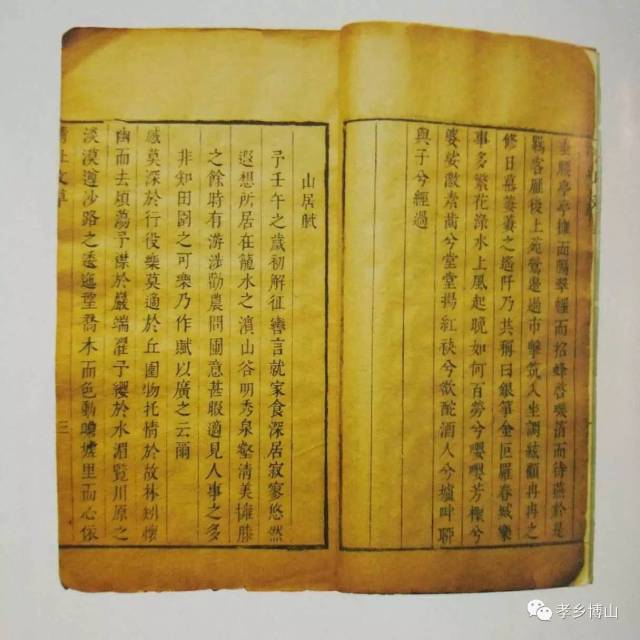 亭亭擁而招蜂啓而待燕於是
羈客雁後上苑鶯邊過市擊筑入坐調絃顧冉冉之
修日慕萋萋之阡乃共稱曰銀箏金叵羅春城樂
事多繁花淥水上風起晚如何百勞兮嚶嚶芳兮
婆娑素兮堂堂揚紅袂兮欲酡酒人兮壚畔聊
與子兮經過
山居賦
予壬午之歲初解征轡言就家食深居寂寥悠然
遐想所居在籠水之濱山谷明秀泉壑清美擁膝
之餘時有游涉勸農問圃意甚暇適見人事之多
非知田園之可樂乃作賦以廣之云爾
慼莫深於行役樂莫適於丘園物托情於故林矧懷
幽而去煩蕩予襟於巖端濯予纓於水湄覽川原之
淡漠遵沙路之逶迤望喬木而色動瞻墟里而心依
三
孝乡博山